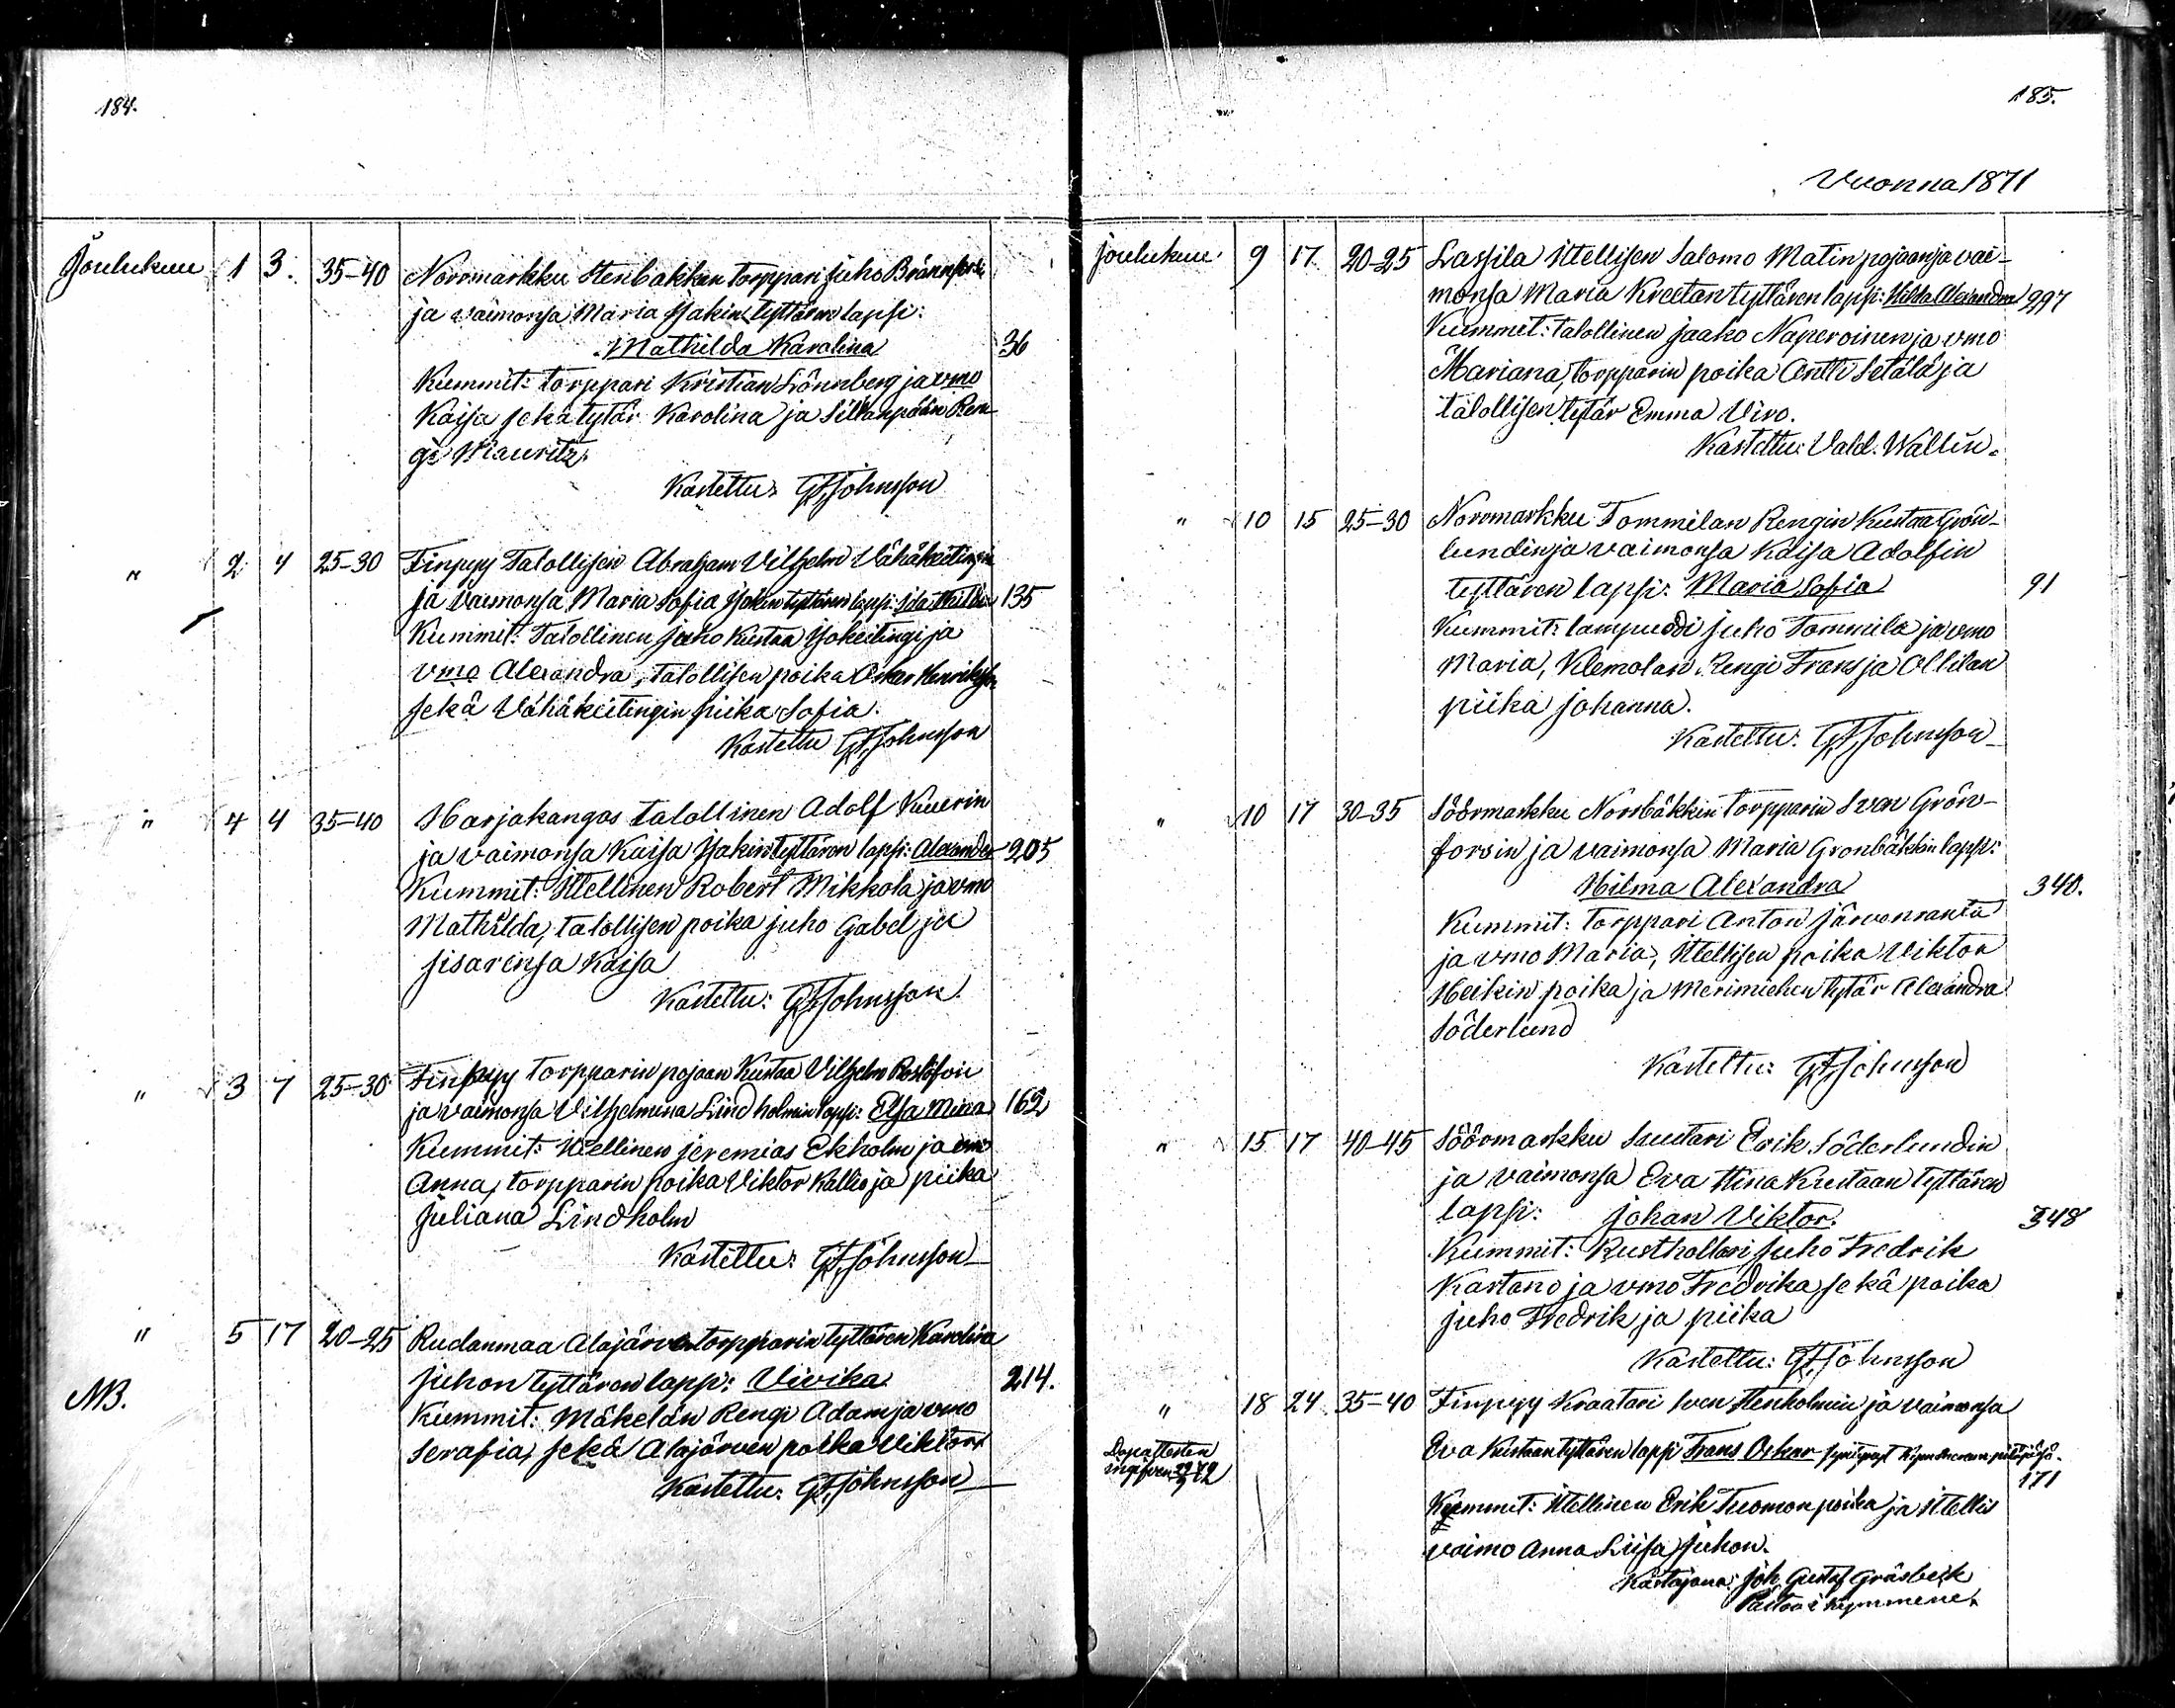 184.
Joulukuu 1 3. 35-40 Norrmarkku Stenbakkan torppari Juho Brännforsin
ja vaimonsa Maria Isakin tyttären lapsi:
Mathilda Karolina 36
Kummit: torppari Kristian Lönnberg ja vmo
Kaisa sekä tytär Karolina ja Sillanpään Ren-
gi Mauritz.
Kastettu: G.F. Johnsson
" 2 4 25-30 Finpyy Talollisen Abraham Vilhelm Vähäkeitingin
ja vaimonsa Maria Sofia Isakin tyttären lapsi: Ida 135
Kummit: Talollinen Juho Kustaa Isokeitingi ja
vmo Alexandra, talollisen poika Oskar Henriksson
sekä Vähäkeitingin piika Sofia.
Kastettu G.F. Johnsson
" 4 4 35-40 Harjakangas talollinen Adolf Kuuerin
ja vaimonsa Kaisa Isakin tyttären lapsi: Alexander 205
Kummit: Itellinen Robert Mikkola ja vmo
Mathilda, talollisen poika Juho Gabel ja
sisarensa Kaisa
Kastettu: G.F. Johnsson.
" 3 7 25-30 Finpyy torpparin pojaan Kustaa Vilhelm
ja vaimonsa Vilhelmina Lindholmin lapsi: Elsa Mina 162
Kummit: Itellinen Jeremias Ekholm ja vmo
Anna, torpparin poika Viktor Kallio ja piika
Juliana Lindholm
Kastettu: G.F. Johnsson
" 5 17 20-25 Rudanmaa Alajärven torpparin tyttären Karolina
Juhon tyttären laps: Vivika 214.
NB.
Kummit: Mäkelän Rengi Adam ja vmo
Serafia, sekä Alajärven poika Viktor
Kastettu: G.F. Johnsson
185.
Vuonna 1871
Joulukuu 9 17 20-25 Lassila Itellisen Salomo Matin pojaan ja vai-
monsa Maria Kreetan tyttären lapsi: Hilda Alexandra 297
Kummit: talollinen Jaako Naperoinen ja vmo
Mariana, torpparin poika Antti Setälä ja
talollisen tytär Emma Viro.
Kastettu: Vald. Wallin.
" 10 15 25-30 Norrmarkku Tommilan Rengin Kustaa Grön-
lundin ja vaimonsa Kaisa Adolfin
tyttären lapsi: Maria Sofia 91
Kummit: lampuodi Juho Tommila ja vmo
Maria, Klemolan Rengi Frans ja Ollilan
piika Johanna.
Kastettu: G.F. Johnsson
" 10 17 30-35 Söörmarkku Norrbäkkin torpparin Sven Grön-
forsin ja vaimonsa Maria Gronbäkkin laps:
Hilma Alexandra 340.
Kummit: torppari Anton Järvenranta
ja vmo Maria, Itellisen poika Viktor
Heikin poika ja Merimiehen tytär Alexandra
Söderlund
Kastettu: G.F. Johnsson
" 15 17 40-45 Söörmarkku Suutari Erik Söderlundin
ja vaimonsa Eva Stina Kustaan tyttären
lapsi: Johan Viktor. 348
Kummit: Rusthollari Juho Fredrik
Kartano ja vmo Fredrika sekä poika
Juho Fredrik ja piika
Kastettu: G.F. Johnsson
" 18 24 35-40 Finpyy Kraatari Sven Stenholmin ja vaimonsa
Dopattesten
ingifven 72
Eva Kustaan tyttären lapsi Frans Oskar
171
Kummit: Itellinen Erik Tuomon poika ja Itellis
vaimo Anna Liisa Juhon.
Kastajana: Joh. Gustaf Gräsbeck
Pastor i Kymmene.